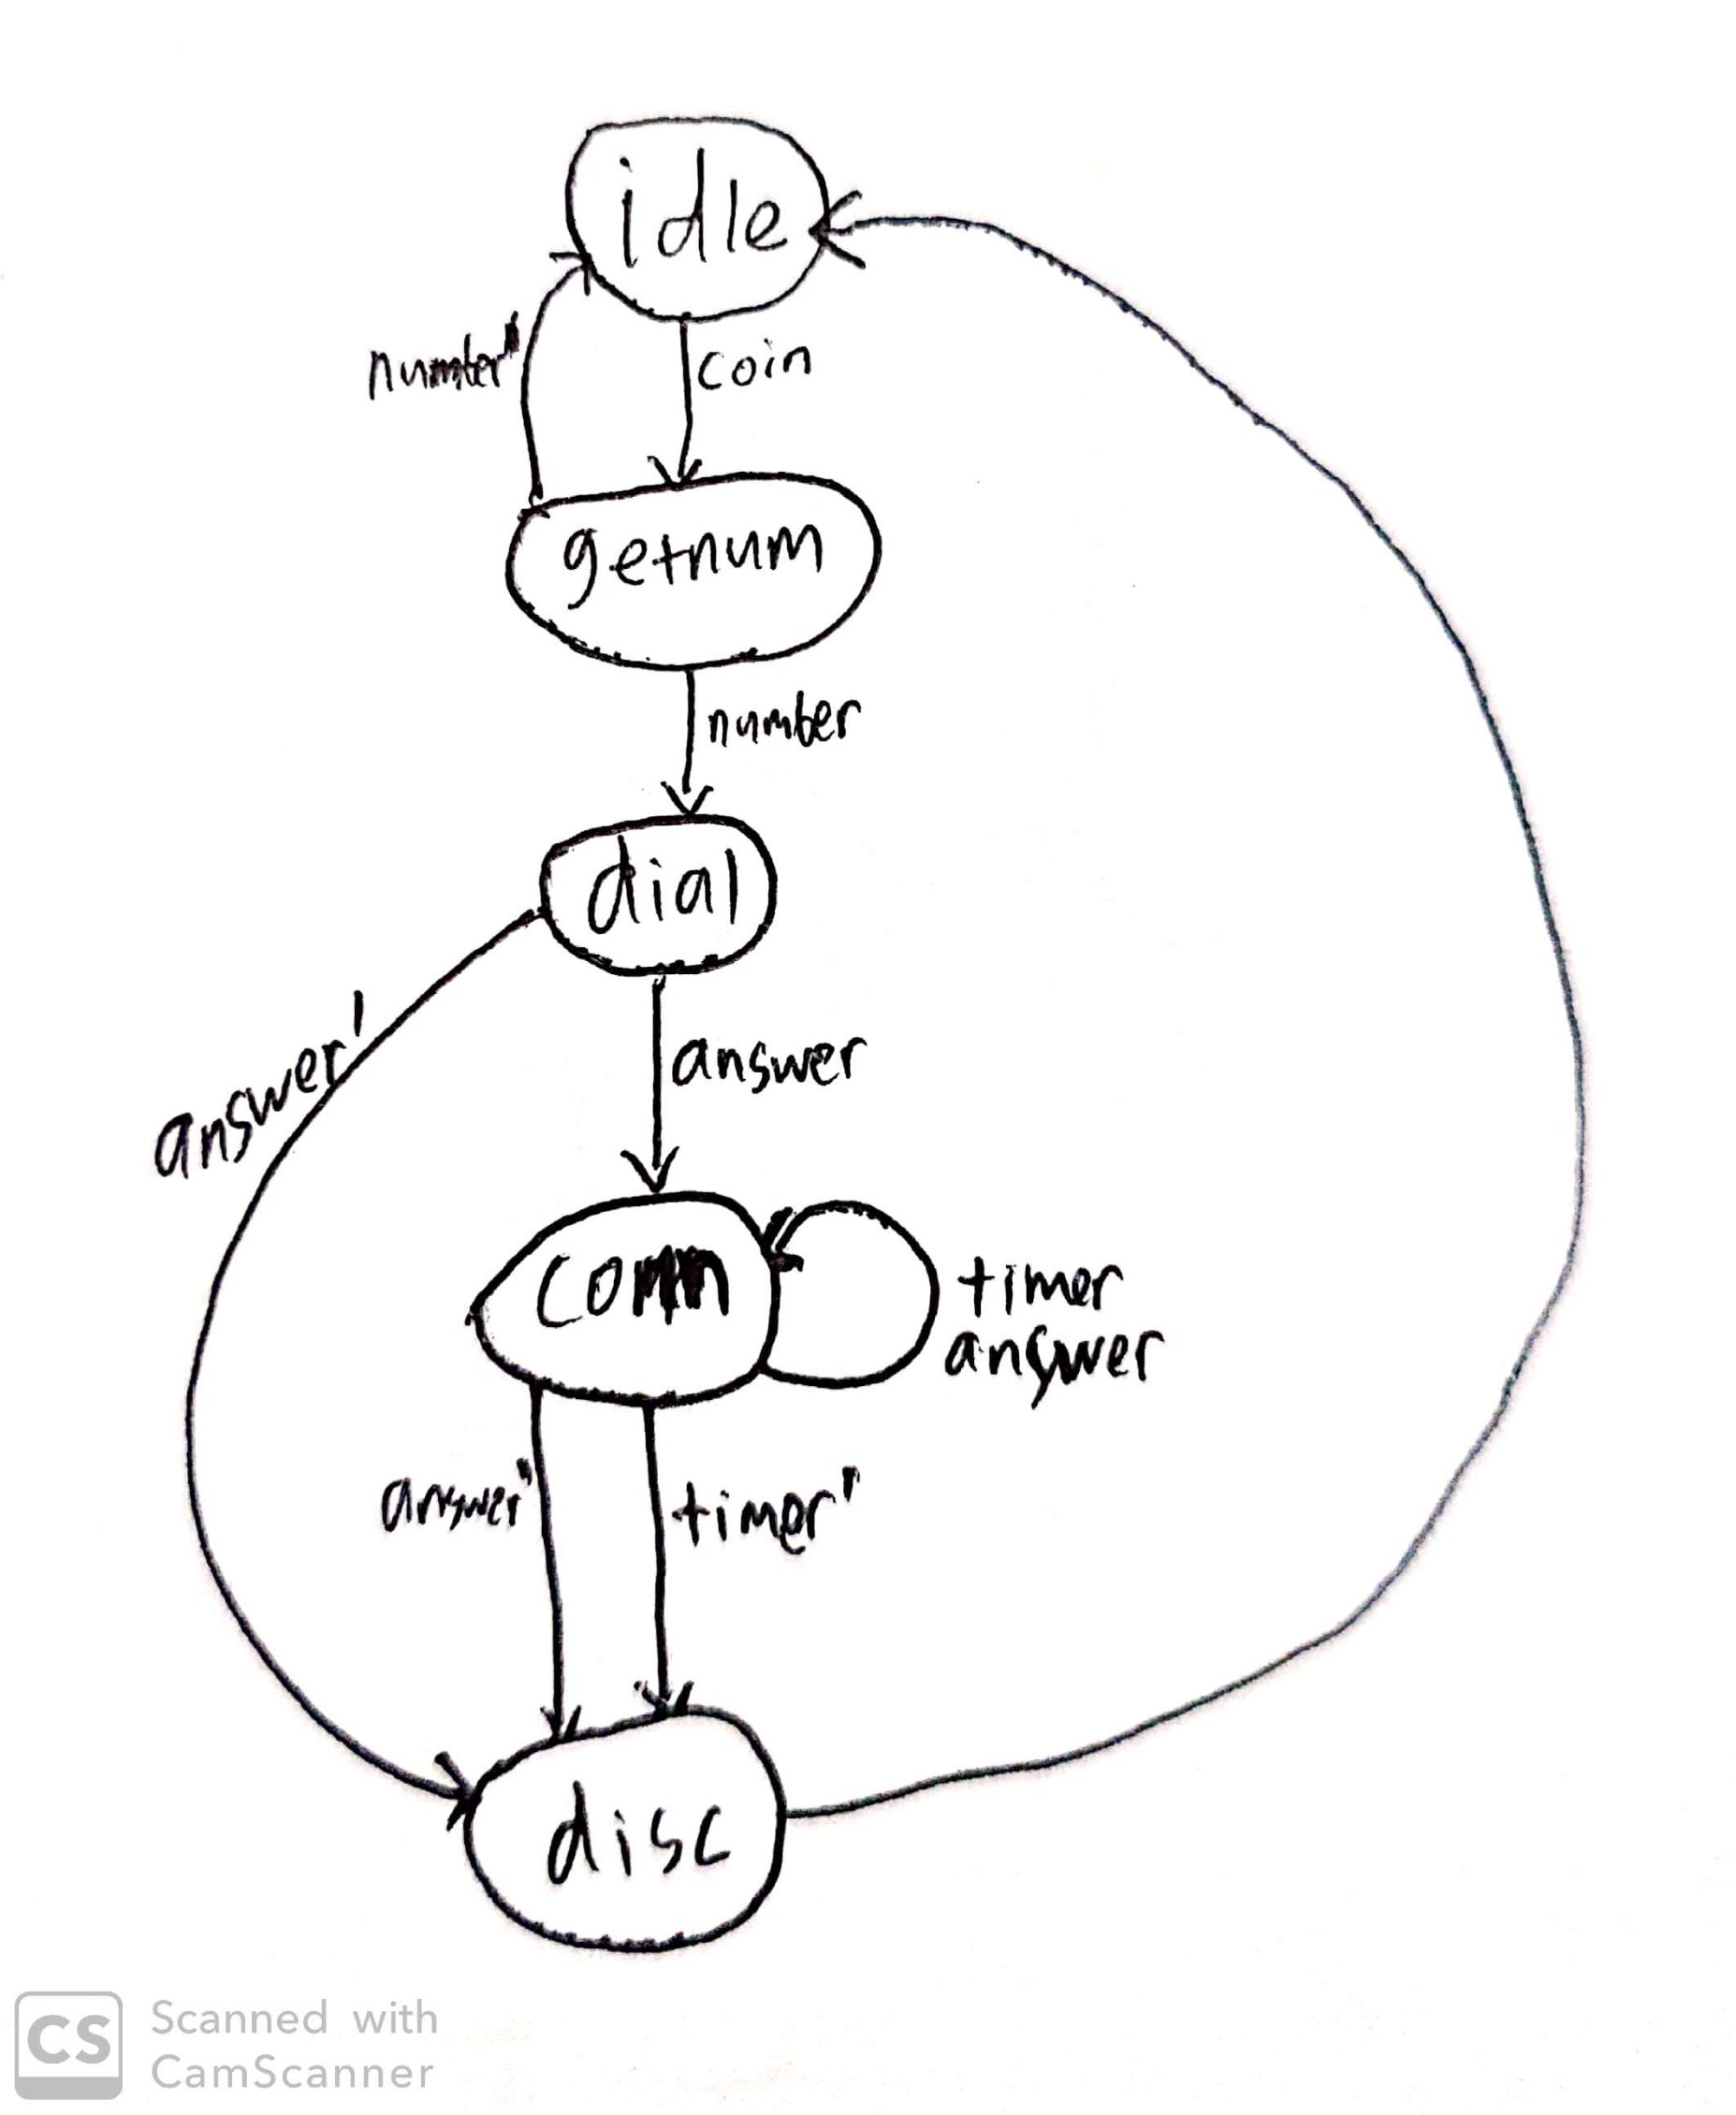 idle
number'
coin
getnum
number
dial
answer'
answer
comm
timer
answer
answer'
timer'
disc
CS
Scanned with
CamScanner